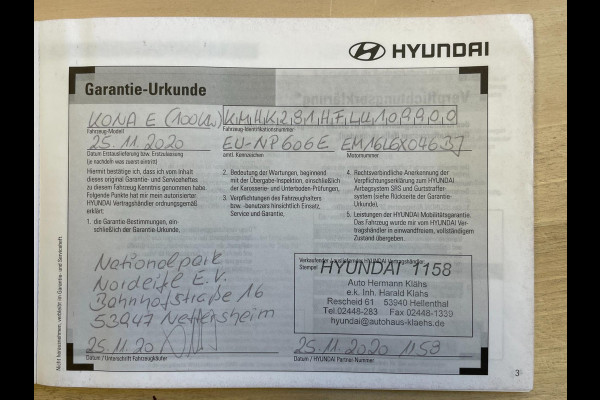 HYUNDAI
Garantie-Urkunde
KONA E (100kW)
Fahrzeug-Modell
Fahrzeug-Identifikationsnummer
25.11.2020
EU-NP606E
Datum Erstauslieferung bzw. Erstzulassung
(je nachdem was zuerst eintritt)
amtl. Kennzeichen
Motornummer
Hiermit bestätige ich, dass ich vom Inhalt
dieses original Garantie- und Serviceheftes
zu diesem Fahrzeug Kenntnis genommen habe.
Folgende Punkte hat mir mein autorisierter
HYUNDAI Vertragshändler ordnungsgemäß
erklärt:
1. die Garantie-Bestimmungen, ein-
schließlich der Garantie-Urkunde.
2. Bedeutung der Wartungen, beginnend
mit der Übergabe-Inspektion, einschließlich
der Karosserie- und Unterboden-Prüfungen,
3. Verpflichtungen des Fahrzeughalters
bzw. -benutzers hinsichtlich Einsatz,
Service und Garantie,
4. Rechtsverbindliche Anerkennung der
Verpflichtungserklärung zum HYUNDAI
Airbagsystem SRS und Gurtstraffer-
system (siehe Rückseite der Garantie-
Urkunde).
5. Leistungen der HYUNDAI Mobilitätsgarantie.
Das Fahrzeug wurde mir vom HYUNDAI Ver-
tragshändler in einwandfreiem, vollständigem
Zustand übergeben.
Nationalpark
Nordeifel E.V.
Bahnhofstraße 16
53947 Nettersheim
25.11.20
Datum / Unterschrift Fahrzeugkäufer
Stempel
HYUNDAI 1158
Auto Hermann Klahs
e.k. Inh. Harald Klahs
Rescheid 61 53940 Hellenthal
Tel.02448-283 Fax 02448-1339
hyundai@autohaus-klaehs.de
25.11.2020 1158
Datum / HYUNDAI Partner-Nummer
Nicht herausnehmen, verbleibt im Garantie- und Serviceheft
3